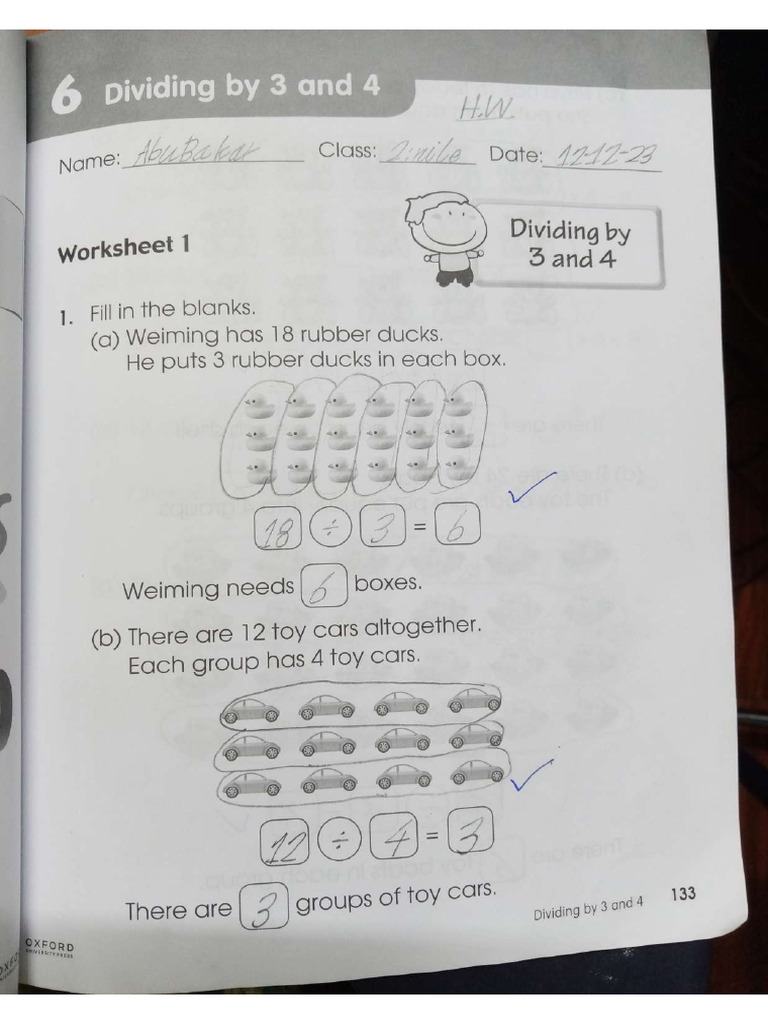 6 Dividing by 3 and 4
H.W.
Name: AbuBakar Class: 2:nile Date: 12-12-23
Worksheet 1
Dividing by
3 and 4
1. Fill in the blanks.
(a) Weiming has 18 rubber ducks.
He puts 3 rubber ducks in each box.
18 ÷ 3 = 6
Weiming needs 6 boxes.
(b) There are 12 toy cars altogether.
Each group has 4 toy cars.
12 ÷ 4 = 3
There are 3 groups of toy cars.
Dividing by 3 and 4 133
OXFORD
UNIVERSITY PRESS